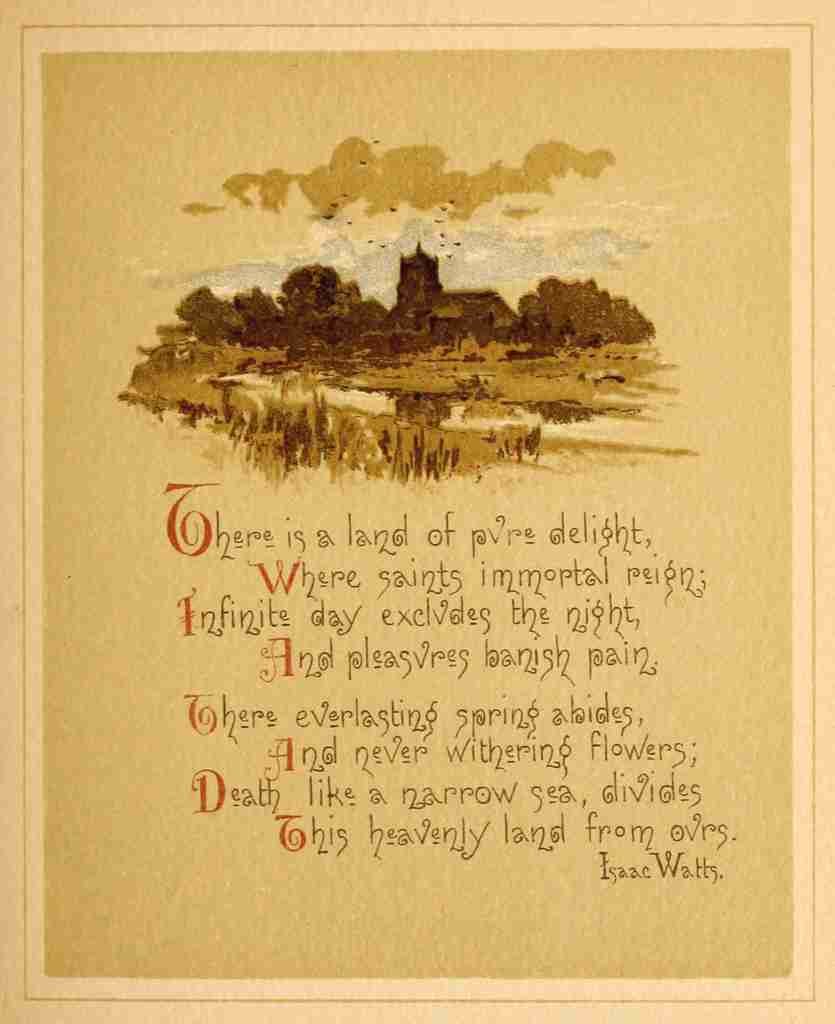 There is a land of pure delight,
Where saints immortal reign;
Infinite day excludes the night,
And pleasures banish pain.
There everlasting spring abides,
And never withering flowers;
Death like a narrow sea, divides
This heavenly land from ours.
Isaac Watts.